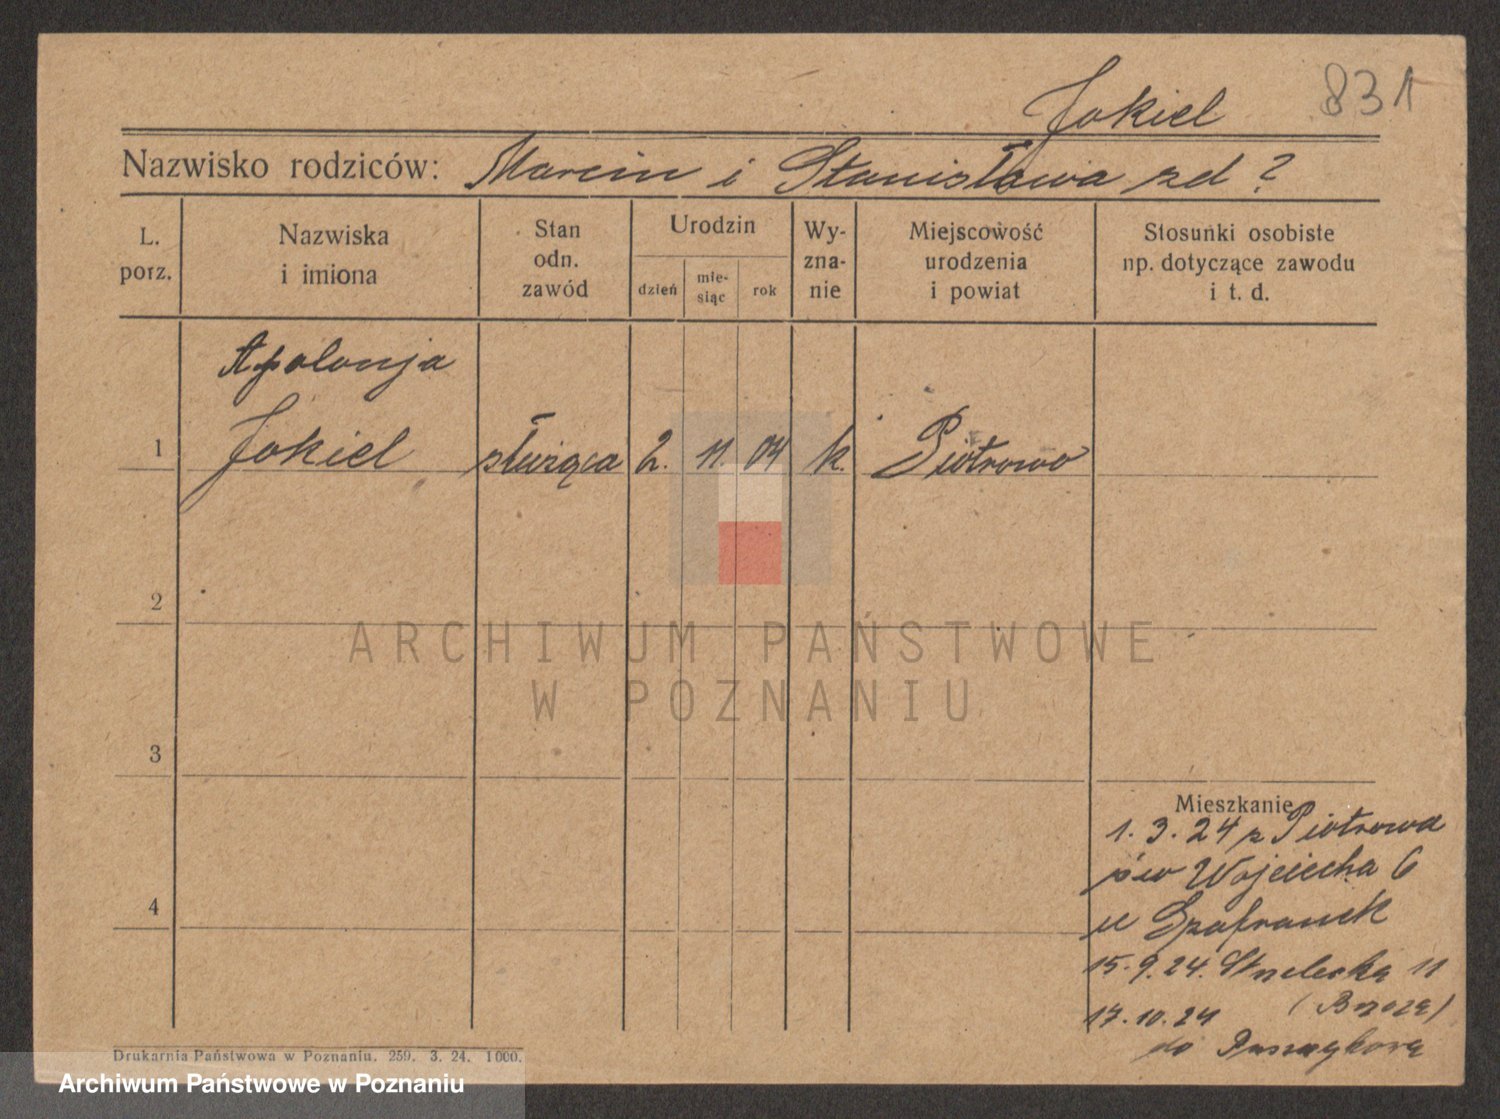 Jokiel 831
Nazwisko rodziców: Marcin i Stanisława zd ?
L. porz.
Nazwiska i imiona
Stan odn. zawód
Urodzin
dzień
mie-siąc
rok
Wy-zna-nie
Miejscowość urodzenia i powiat
Stosunki osobiste np. dotyczące zawodu i t. d.
Apolonja
1 Jokiel służąca 2. 11. 04 k. Piotrowo
2
3
4
ARCHIWUM PAŃSTWOWE
W POZNANIU
Mieszkanie
1. 3. 24 z Piotrowa
św Wojciecha 6
u Szafranek
15. 9. 24. Strzelecka 11
(Brzozą)
17. 10. 24
do
Drukarnia Państwowa w Poznaniu. 259. 3. 24. 1000.
Archiwum Państwowe w Poznaniu